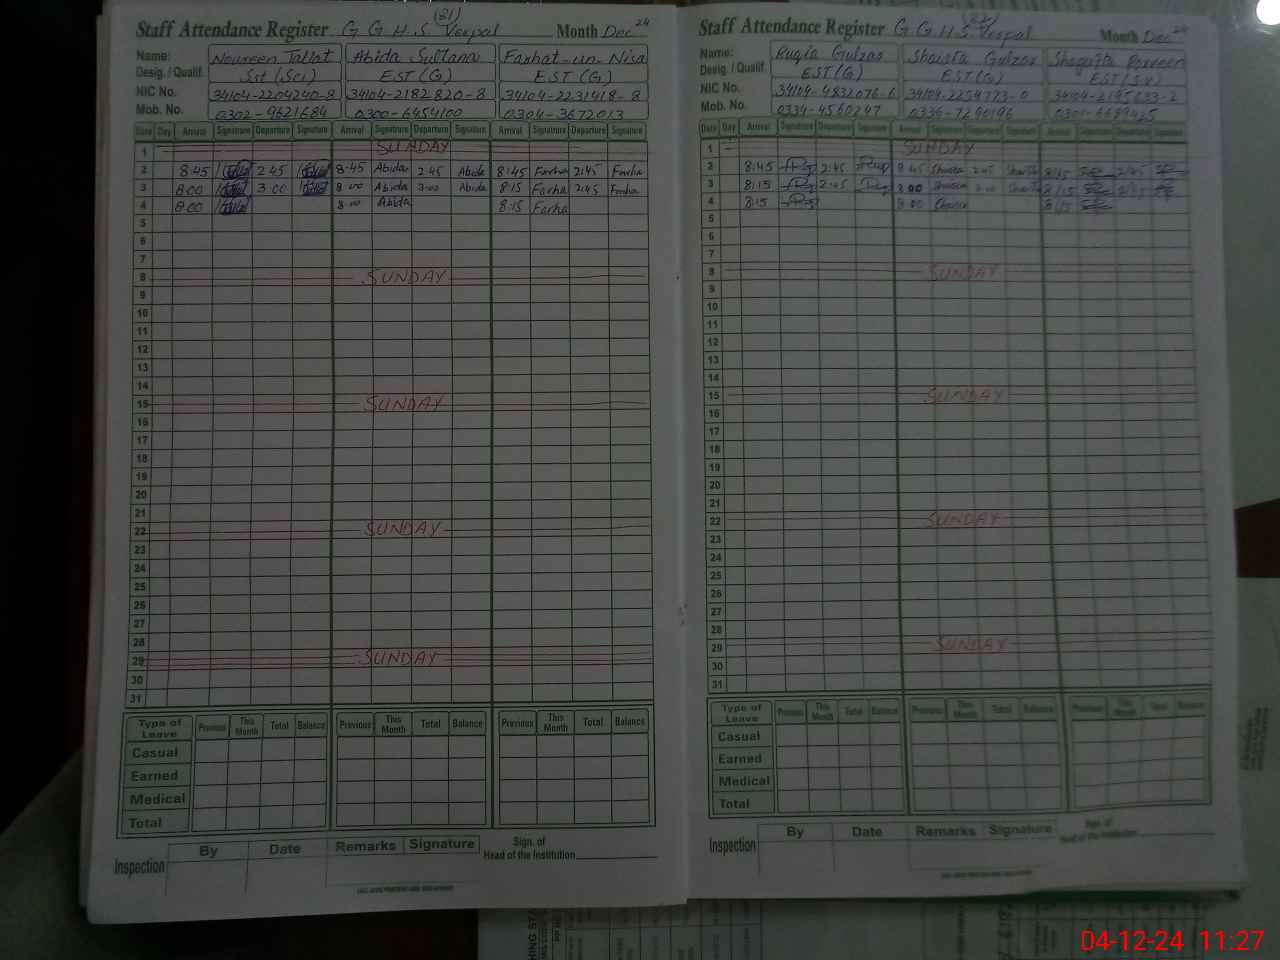 Staff Attendance Register G G H S (31) Verpal Month Dec 24
Name: Noureen Tallat Abida Sultana Farhat-un-Nisa
Desig. / Qualif. Sst (Sci) EST (G) EST (G)
NIC No. 34104-2204240-8 34104-2182820-8 34104-2231418-8
Mob. No. 0302-9621684 0300-6454100 0304-3672013
Date Day Arrival Signature Departure Signature Arrival Signature Departure Signature Arrival Signature Departure Signature
1 SUNDAY
2 8:45 2 45 8:45 Abida 2 45 Abida 8:45 Farha 2:45 Farha
3 8:00 3:00 8:00 Abida 3:00 Abida 8:15 Farha 2:45 Farha
4 8:00 8:00 Abida 8:15 Farha
5
6
7
8 SUNDAY
9
10
11
12
13
14
15 SUNDAY
16
17
18
19
20
21
22 SUNDAY
23
24
25
26
27
28
29 SUNDAY
30
31
Type of Leave Previous This Month Total Balance Previous This Month Total Balance Previous This Month Total Balance
Casual
Earned
Medical
Total
Inspection By Date Remarks Signature Sign. of Head of the Institution
Staff Attendance Register G G H S Verpal Month Dec 24
Name: Ruqia Gulzar Shaista Gulzar Shagufta Parveen
Desig. / Qualif. EST (G) EST (G) EST (Sv)
NIC No. 34104-4832076-6 34104-2254773-0
Mob. No. 0334-4560247 0336-7290196
Date Day Arrival Signature Departure Signature Arrival Signature Departure Signature Arrival Signature Departure Signature
1 SUNDAY
2 8:45 2:45 8 45 2:45 8/15 2/45
3 8:15 2:45 8:00 3:00 8/15 2/45
4 8:15 8:00 8/15
5
6
7
8 SUNDAY
9
10
11
12
13
14
15 SUNDAY
16
17
18
19
20
21
22 SUNDAY
23
24
25
26
27
28
29 SUNDAY
30
31
Type of Leave Previous This Month Total Balance Previous This Month Total Balance Previous This Month Total Balance
Casual
Earned
Medical
Total
Inspection By Date Remarks Signature Sign. of Head of the Institution
04-12-24 11:27